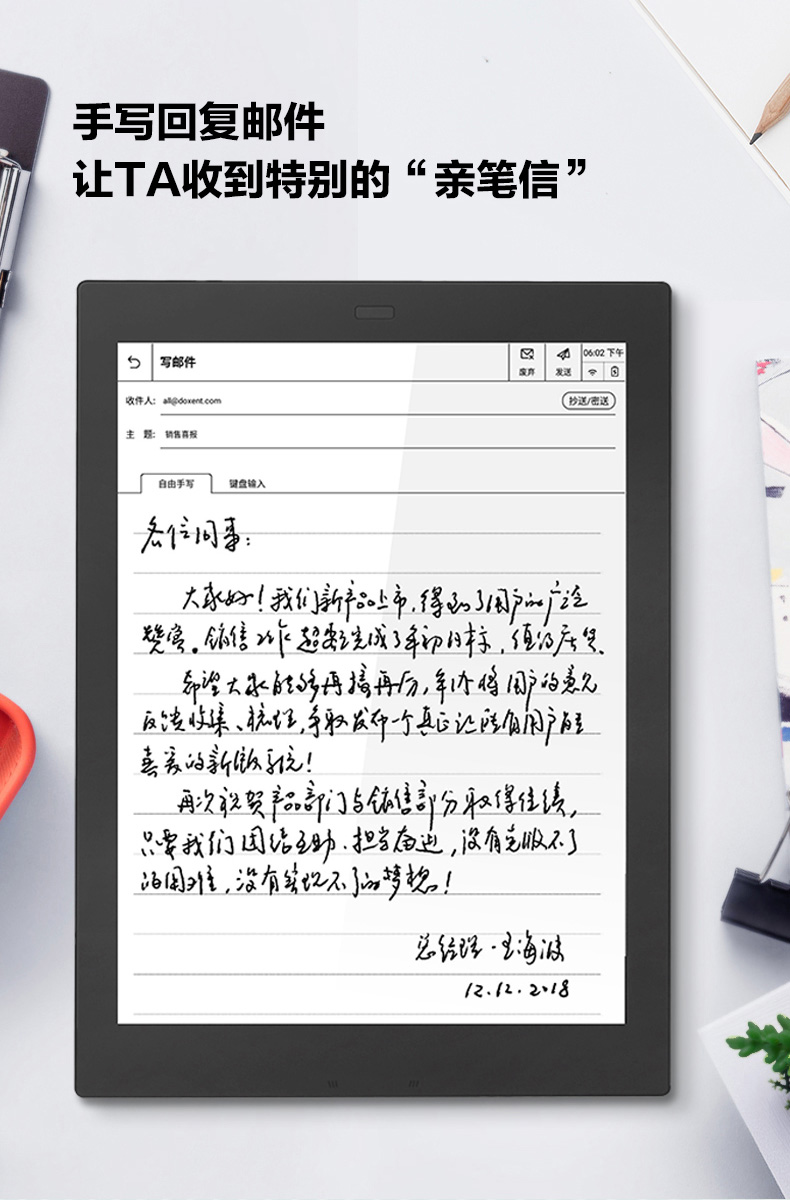 手写回复邮件
让TA收到特别的“亲笔信”
写邮件
废弃
发送
06:02 下午
收件人: all@doxent.com
抄送/密送
主 题: 销售喜报
自由手写 键盘输入
各位同事：
大家好！我们新产品上市，得到了用户的广泛
赞赏。销售工作超额完成了年初目标，值得庆贺。
希望大家能够再接再厉，年后将用户的意见
反馈收集、梳理，争取发布一个真正让所有用户都
喜爱的新版系统！
再次祝贺产品部门与销售部分取得佳绩，
只要我们团结互助、担当奋进，没有克服不了
的困难，没有实现不了的梦想！
总经理·王海波
12.12.2018